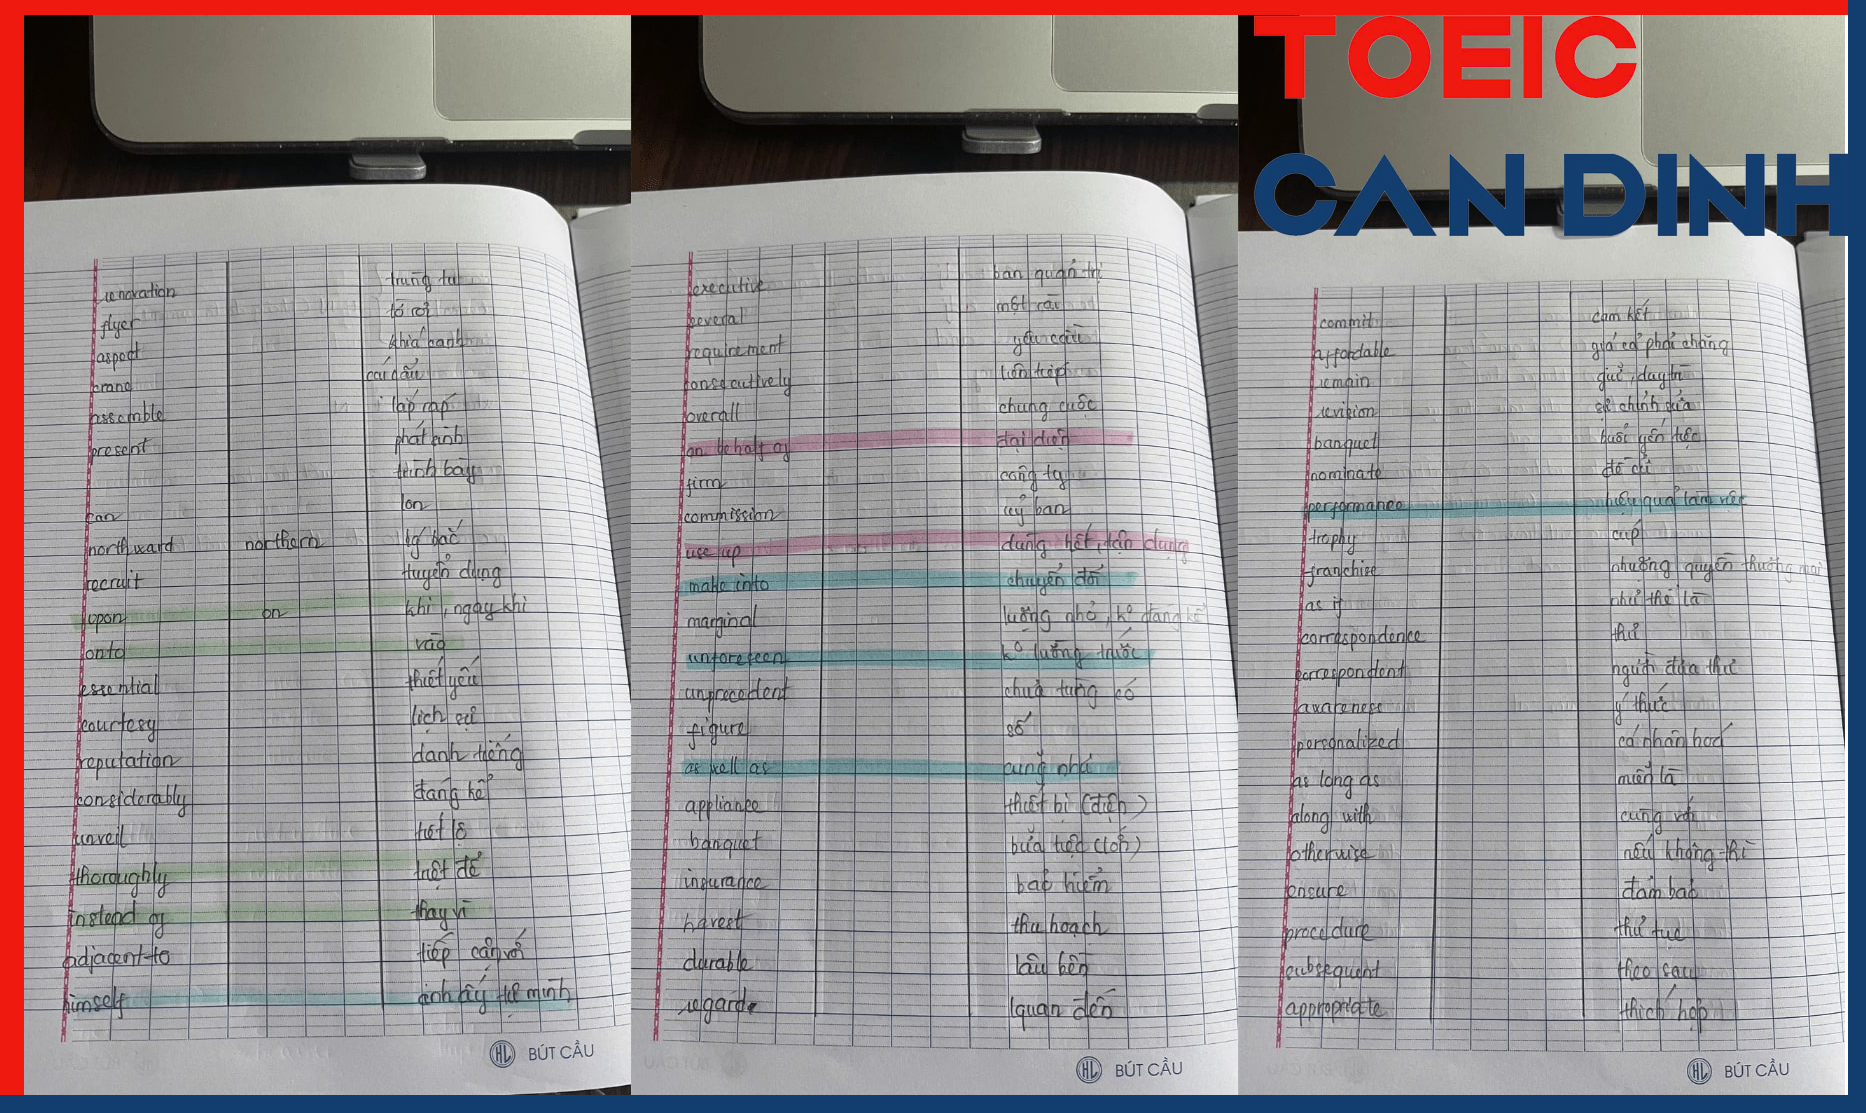 TOEIC
CAN DINH
renovation trùng tu
flyer tờ rơi
aspect khía cạnh
brand
assemble lắp ráp
present phát hình
trình bày
can lon
northward northern
recruit tuyển dụng
upon on khi, ngay khi
onto vào
essential thiết yếu
courtesy lịch sự
reputation danh tiếng
considerably đáng kể
unveil tiết lộ
thoroughly triệt để
instead of thay vì
adjacent to tiếp cận với
himself anh ấy tự mình
HL BÚT CẦU
executive ban quản trị
several một vài
requirement yêu cầu
consecutively liên tiếp
overall chung cuộc
on behalf of đại diện
firm công ty
commission uỷ ban
use up dùng hết, tận dụng
make into chuyển đổi
marginal lượng nhỏ, ko đáng kể
unforeseen ko lường trước
unprecedent chưa từng có
figure số
as well as cũng như
appliance thiết bị (điện)
banquet bữa tiệc (lớn)
insurance bảo hiểm
harest thu hoạch
durable lâu bền
regard quan đến
HL BÚT CẦU
commit cam kết
affordable giá cả phải chăng
remain giữ, duy trì
revision sự chỉnh sửa
banquet buổi yến tiệc
nominate đề cử
performance hiệu quả làm việc
trophy cúp
franchise nhượng quyền thương mại
as if như thể là
correspondence thư
correspondent người đưa thư
awareness ý thức
personalized cá nhân hoá
as long as miễn là
along with cùng với
otherwise nếu không thì
ensure đảm bảo
procedure thủ tục
subsequent theo sau
appropriate thích hợp
HL BÚT CẦU